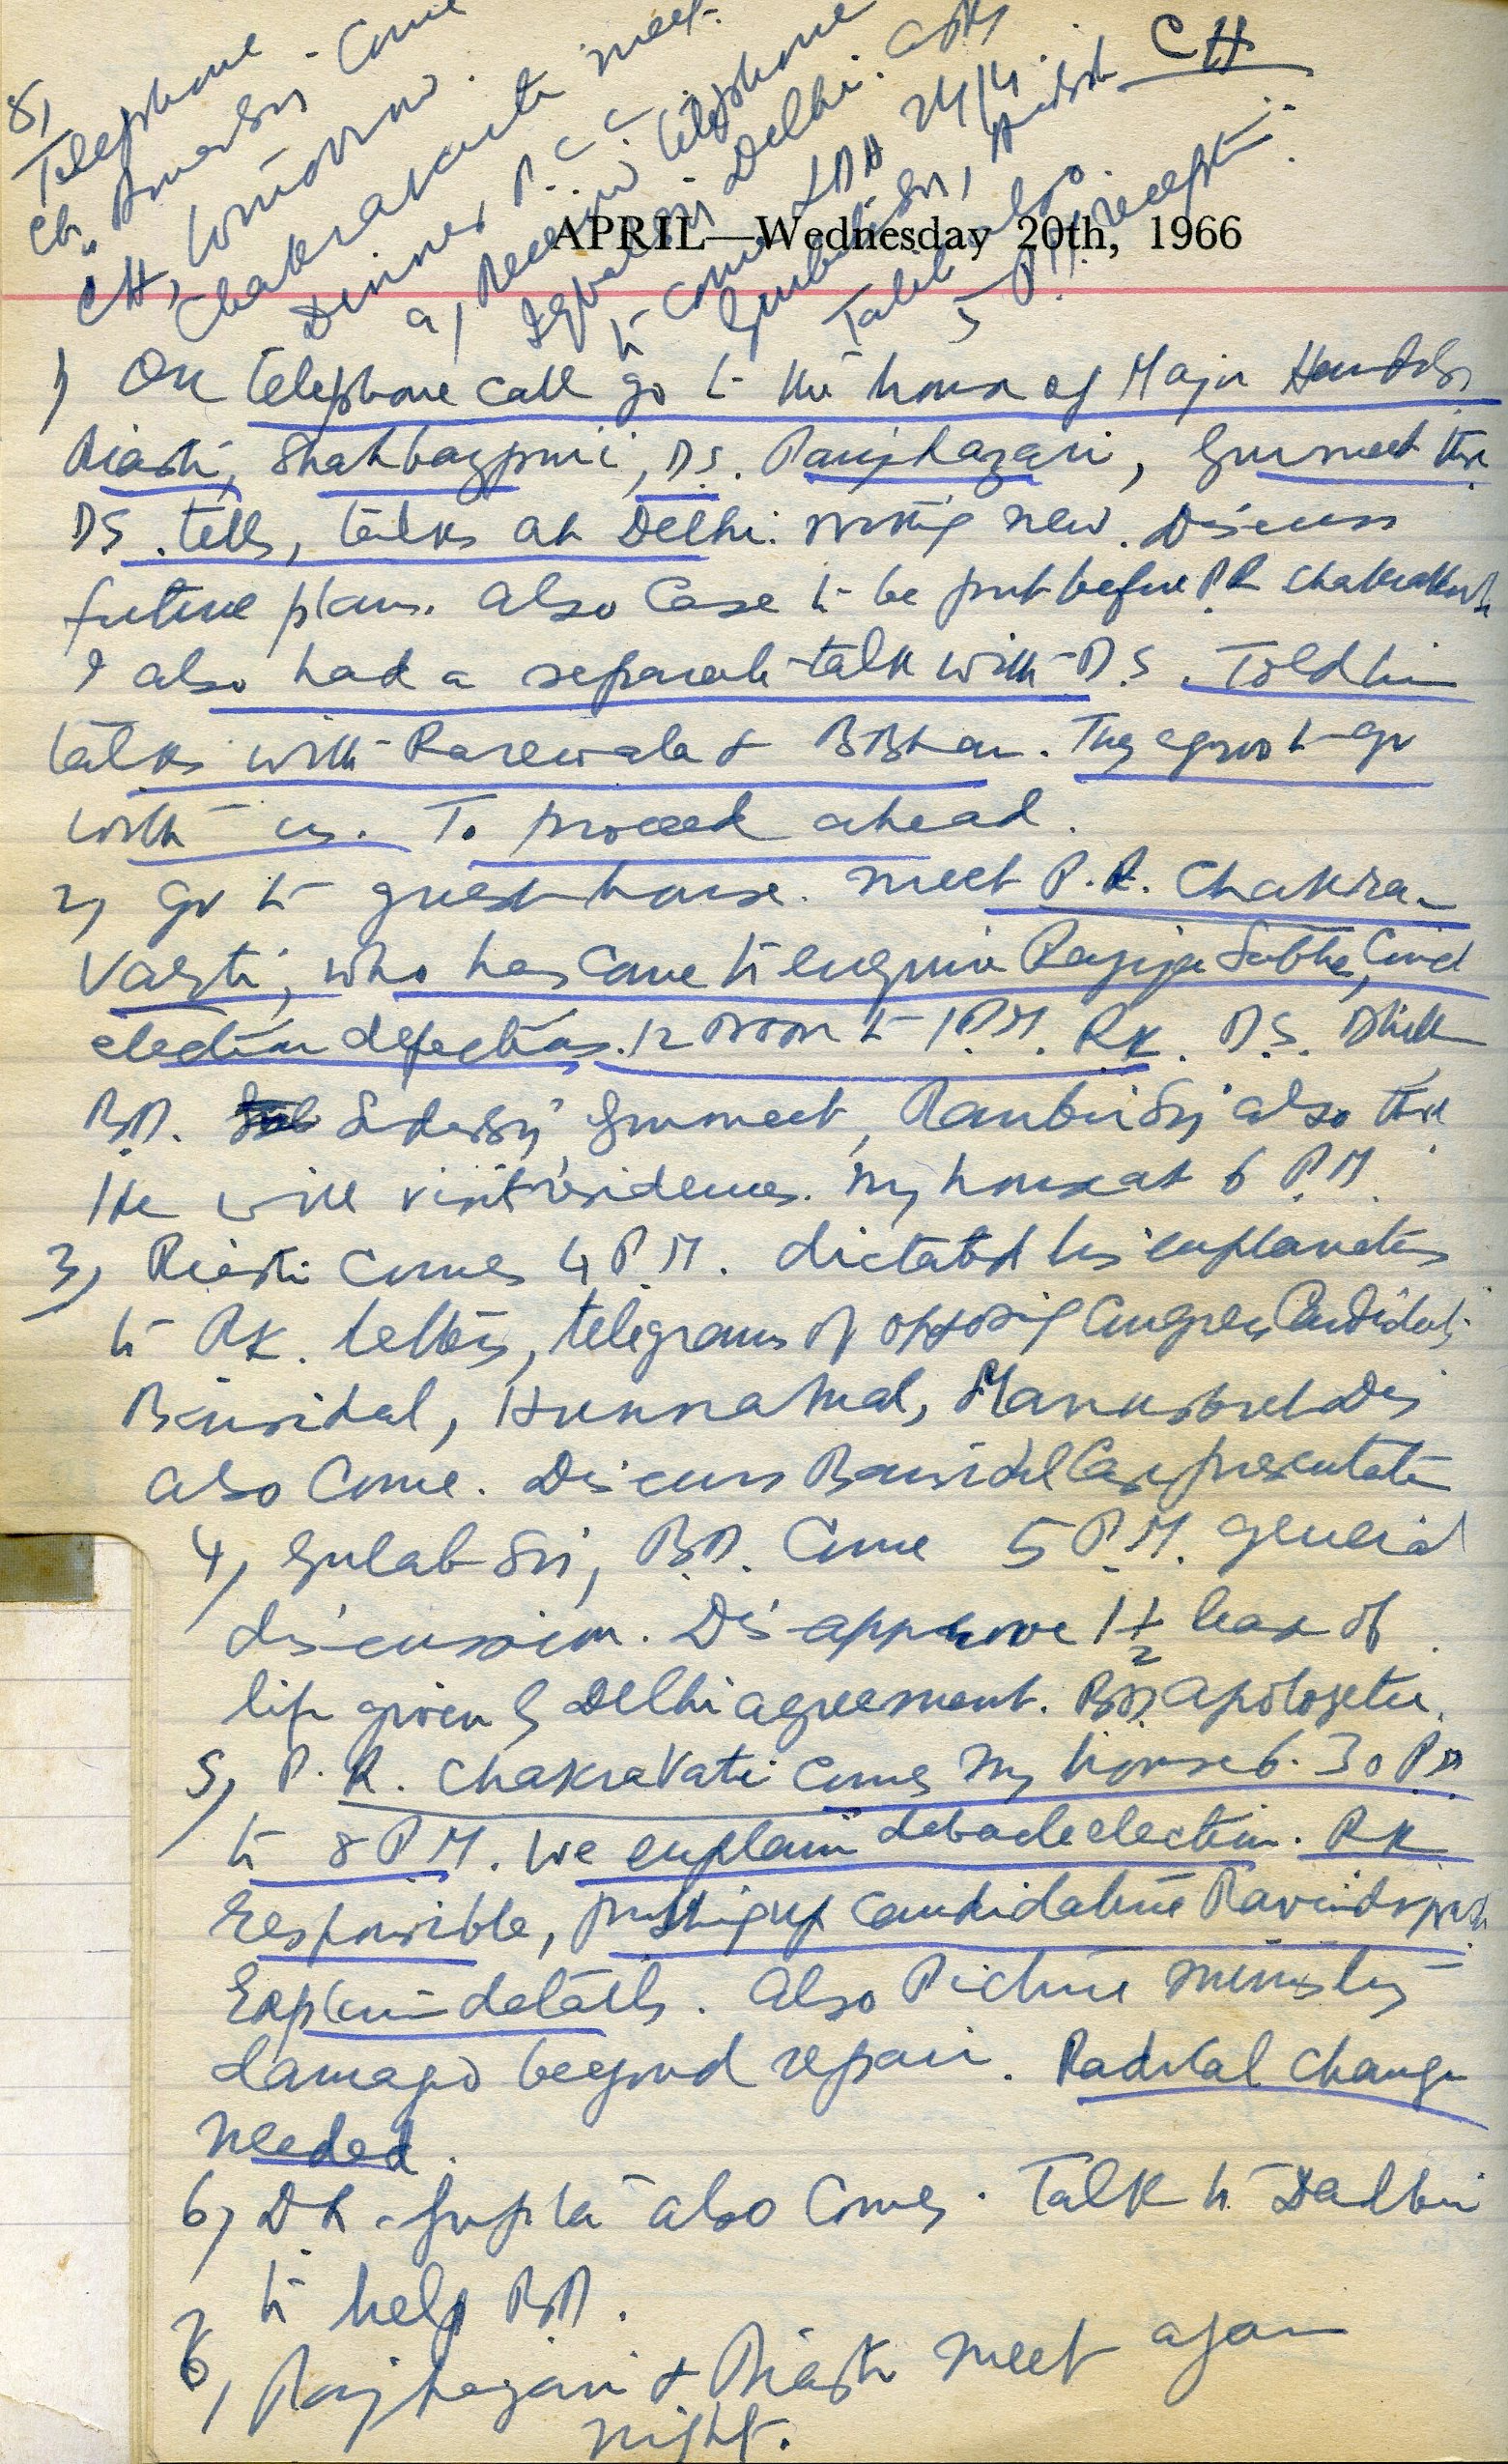 CH
APRIL—Wednesday 20th, 1966
1) On telephone call go to the house of Major
Riasti, Shahbazpuri, D.S. Panjhazari, Gurmeet there
DS. tells, talks at Delhi. nothing new. Discuss
future plans. Also Case to be put before P.R. Chakravarti
I also had a separate talk with D.S. Told him
talks with Rarewala & BBhan. They agreed to go
with us. To proceed ahead.
2) Go to guest house. meet P.R. Chakra-
Varti, who has come to enquire Rajya Sabha, Council
election defections. 12 noon to 1 P.M. RK. D.S. Dhillon
B.D. Gurmeet, Ranbir Singh also there
He will visit residences. my house at 6 P.M.
3) Riasti comes 4 P.M. dictated his explanation
to RK. letters, telegrams of opposing Congress Candidates
Bansidal, Hukna Mal,
also Come. Discuss Bansidal Case presentation
4) Gulab Singh, B.D. Come 5 P.M. general
discussion. Disapprove 1½ lease of
life given by Delhi agreement. BD apologetic.
5) P.R. Chakravarti comes my house 6.30 PM
to 8 PM. We explain debacle election. RK
responsible, putting up candidature
Explain details. Also Picture ministry
damaged beyond repair. Radical change
needed.
6) DR. Gupta also Comes. Talk to Dalbir
to help BD.
7) Panjhazari & Riasti meet again
night.
8) Telephone
Come
CH, tomorrow.
Chakravarti meet
Dinner, P.C.C.
9) Received telephone
Iqbal Singh Delhi.
to come LDH 24/4.
Gurbax Singh,
Talib also.
5 P.M. reception.